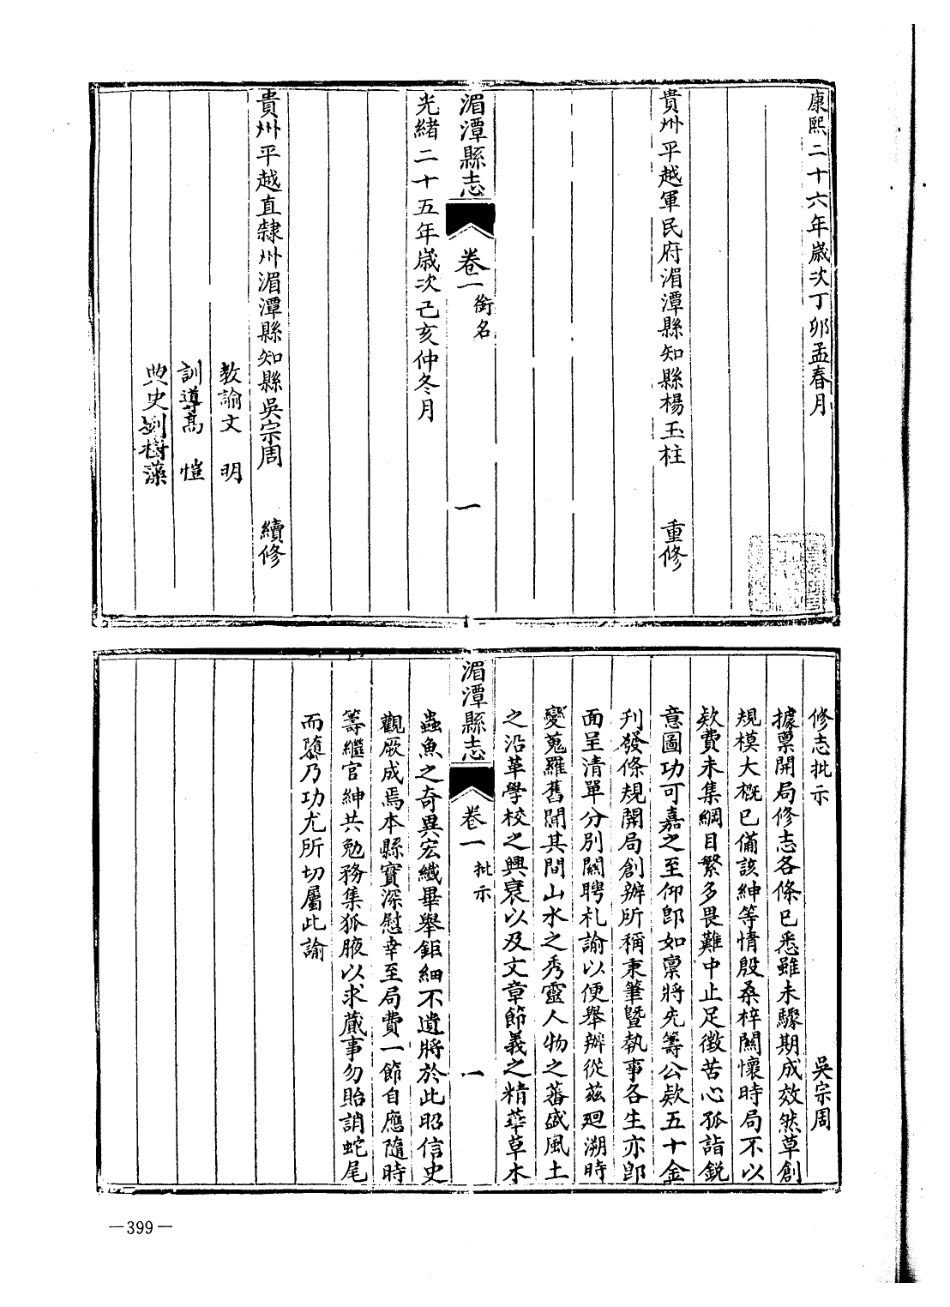 康熙二十六年歲次丁卯孟春月
貴州平越軍民府湄潭縣知縣楊玉柱　重修
湄潭縣志　卷一　銜名　一
光緒二十五年歲次己亥仲冬月
貴州平越直隸州湄潭縣知縣吳宗周　續修
教諭文　明
訓導蔿　愷
典史劉樹藻
修志批示　吳宗周
據禀開局修志各條已悉雖未驟期成效然草創
規模大概已備該紳等情殷桑梓關懷時局不以
欵費未集綱目繁多畏難中止足徵苦心孤詣鋭
意圖功可嘉之至仰卽如禀將先籌公欵五十金
刋發條規開局創辦所稱秉筆曁執事各生亦卽
面呈清單分別關聘札諭以便舉辦從茲廻溯時
變蒐羅舊聞其間山水之秀靈人物之蕃盛風土
之沿革學校之興衰以及文章節義之精華草木
湄潭縣志　卷一　批示　一
蟲魚之奇異宏纖畢舉鉅細不遺將於此昭信史
觀厥成焉本縣實深慰幸至局費一節自應隨時
籌繼官紳共勉務集狐腋以求蕆事勿貽誚蛇尾
而隳乃功尤所切屬此諭
—399—